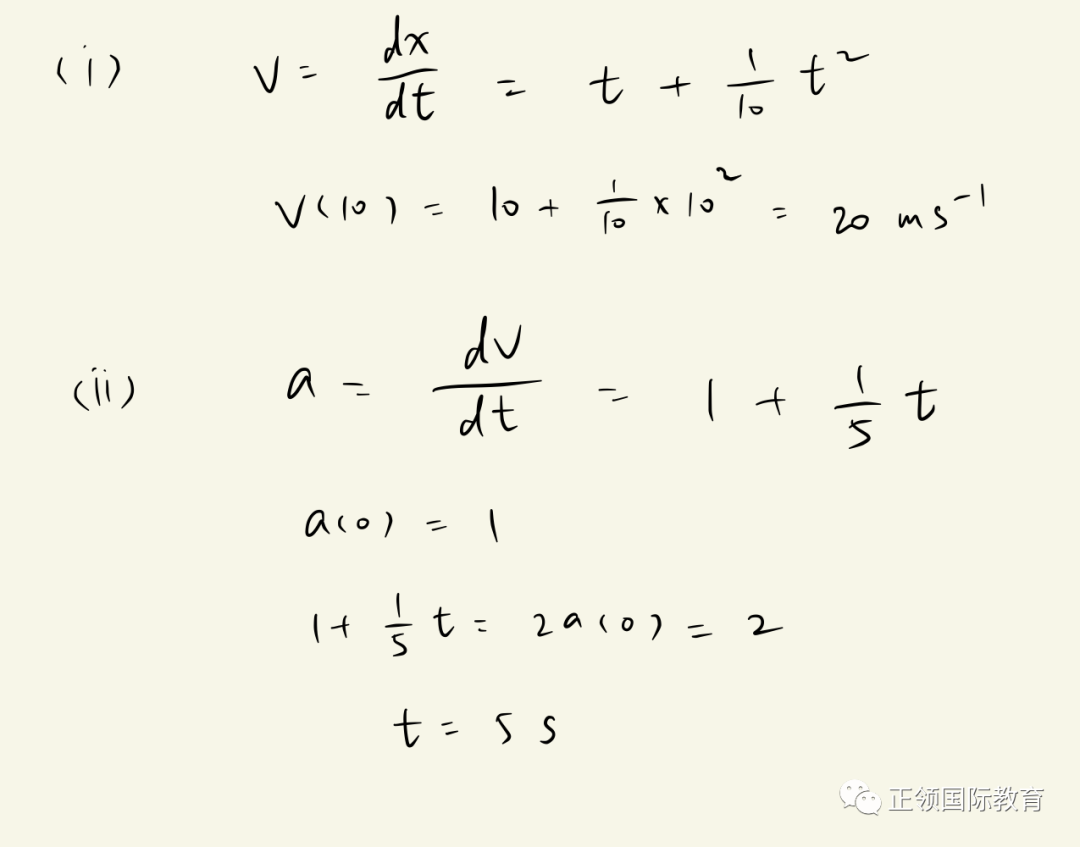 (i) v = dx/dt = t + 1/10 t²
v(10) = 10 + 1/10 × 10² = 20 ms⁻¹
(ii) a = dv/dt = 1 + 1/5 t
a(0) = 1
1 + 1/5 t = 2a(0) = 2
t = 5 s
正领国际教育